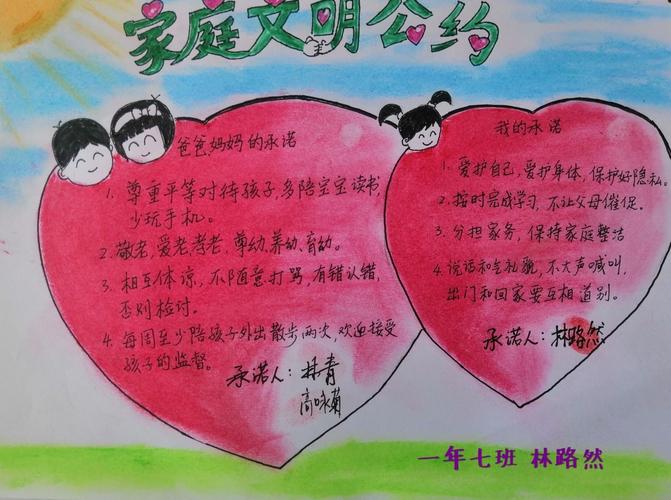 家庭文明公约
爸爸妈妈的承诺
1. 尊重平等对待孩子,多陪宝宝读书,
少玩手机。
2. 敬老,爱老,孝老,尊幼,养幼,育幼。
3. 相互体谅,不随意打骂,有错认错,
否则检讨。
4. 每周至少陪孩子外出散步两次,欢迎接受
孩子的监督。
承诺人:林青
高咏菊
我的承诺
1. 爱护自己,爱护身体,保护好隐私。
2. 按时完成学习,不让父母催促。
3. 分担家务,保持家庭整洁
4. 说话和气礼貌,不大声喊叫,
出门和回家要互相道别。
承诺人:林路然
一年七班 林路然